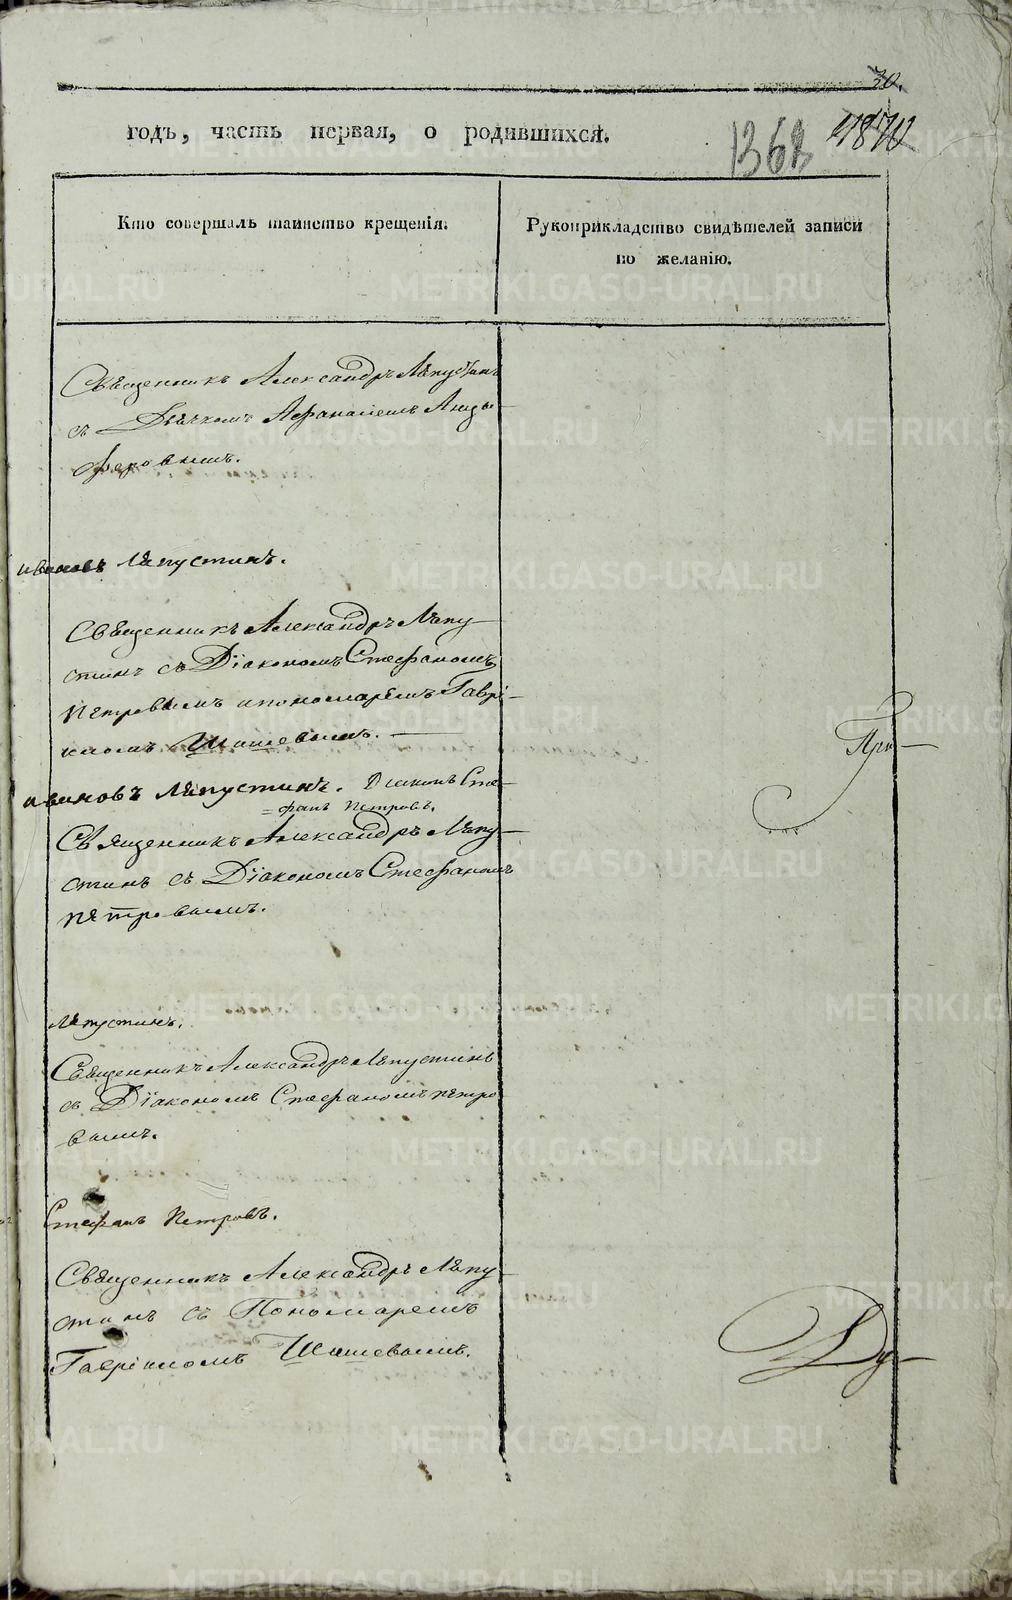 30.
годъ, часть первая, о родившихся.
1362 1870
Кто совершалъ таинство крещенія.
Рукоприкладство свидѣтелей записи
по желанію.
Священникъ Александръ Ляпустинъ
съ Дьячкомъ Афанасіемъ Анцы
феровымъ.
ивановъ Ляпустинъ.
Священникъ Александръ Ляпу
стинъ съ Діакономъ Стефаномъ
Петровымъ и пономаремъ Гаврі-
иломъ Шишевымъ.
ивановъ Ляпустинъ. Діаконъ Сте-
=фанъ Петровъ.
Священникъ Александръ Ляпу-
стинъ съ Діакономъ Стефаномъ
Петровымъ.
Ляпустинъ.
Священникъ Александръ Ляпустинъ
съ Діакономъ Стефаномъ Петро
вымъ.
Стефанъ Петровъ.
Священникъ Александръ Ляпу
стинъ съ Пономаремъ
Гавріиломъ Шишевымъ.
При-
Ду-
METRIKI.GASO-URAL.RU